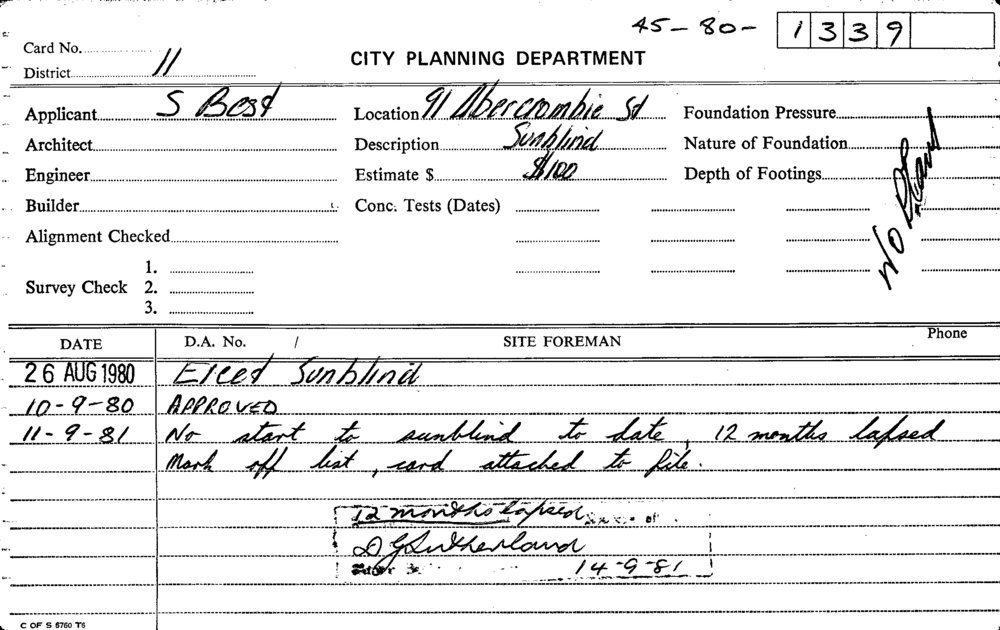 45-80- 1339
Card No.
District 11
CITY PLANNING DEPARTMENT
Applicant S Best
Location 91 Abercrombie St
Foundation Pressure
Architect
Description Sunblind
Nature of Foundation
Engineer
Estimate $ $100
Depth of Footings
Builder
Conc. Tests (Dates)
No Plans
Alignment Checked
Survey Check 1.
2.
3.
DATE D.A. No. / SITE FOREMAN Phone
26 AUG 1980 Erect Sunblind
10-9-80 APPROVED
11-9-81 No start to sunblind to date, 12 months lapsed
Mark off list, card attached to file.
12 months lapsed of
D G Sutherland
14-9-81
C OF S 6760 T6